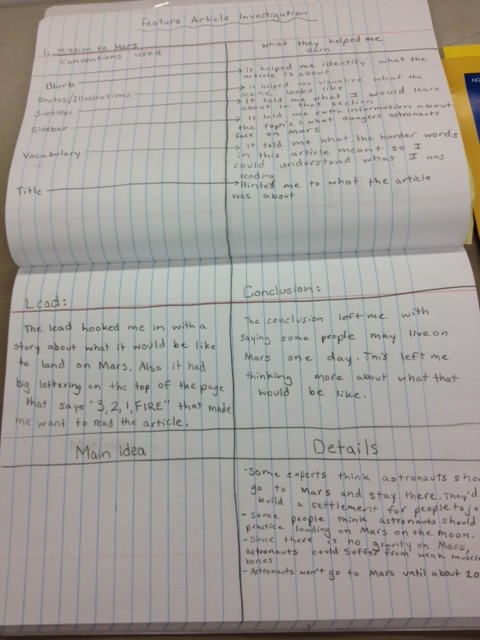 Feature Article Investigation
1. Mission to Mars
Conventions used
What they helped me
learn
Blurb
It helped me identify what the
article is about
Photos/Illustrations
It helped me visualize what the
scene looks like
Subtitles
It told me what I would learn
about in that section
Sidebar
It told me extra information about
the topic: what dangers astronauts
face on Mars
Vocabulary
It told me what the harder words
in this article meant so I
could understand what I was
reading
Title
Hinted me to what the article
was about
Lead:
The lead hooked me in with a
story about what it would be like
to land on Mars. Also it had
big lettering on the top of the page
that says "3,2,1, FIRE" that made
me want to read the article.
Conclusion:
The conclusion left me with
saying some people may live on
Mars one day. This left me
thinking more about what that
would be like.
Main idea
Details
-Some experts think astronauts
go to Mars and stay there. They'd
build a settlement for people to
-Some people think astronauts should
practice landing on Mars on the moon.
-Since there is no gravity on Mars,
astronauts could suffer from weak
bones
-Astronauts won't go to Mars until about